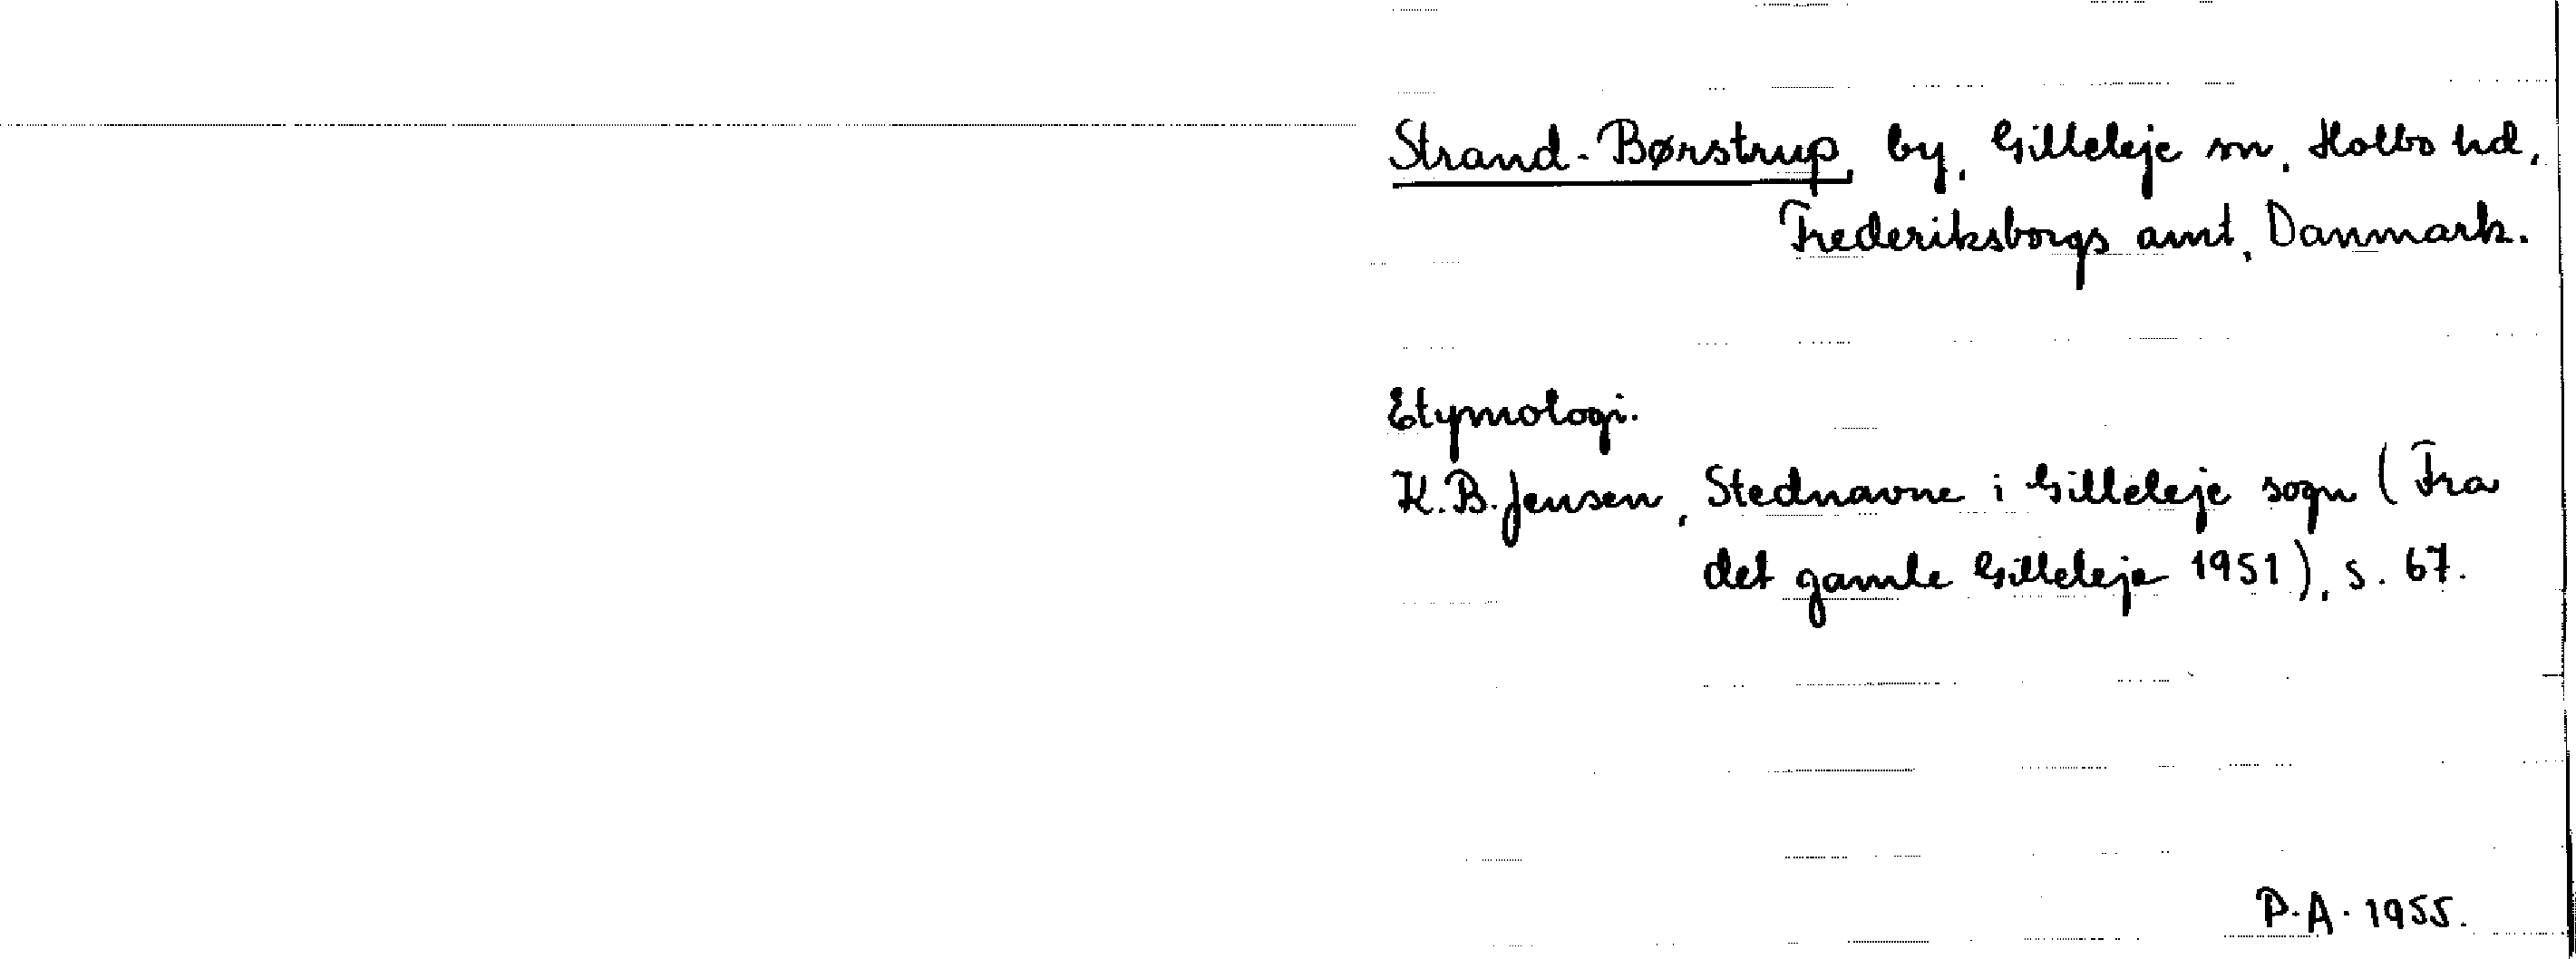 Strand-Børstrup, by, Gilleleje sn, Holbo hd,
Frederiksborgs amt, Danmark.
Etymologi.
K.B. Jensen, Stednavne i Gilleleje sogn (Fra
det gamle Gilleleje 1951), s. 67.
P.A. 1955.